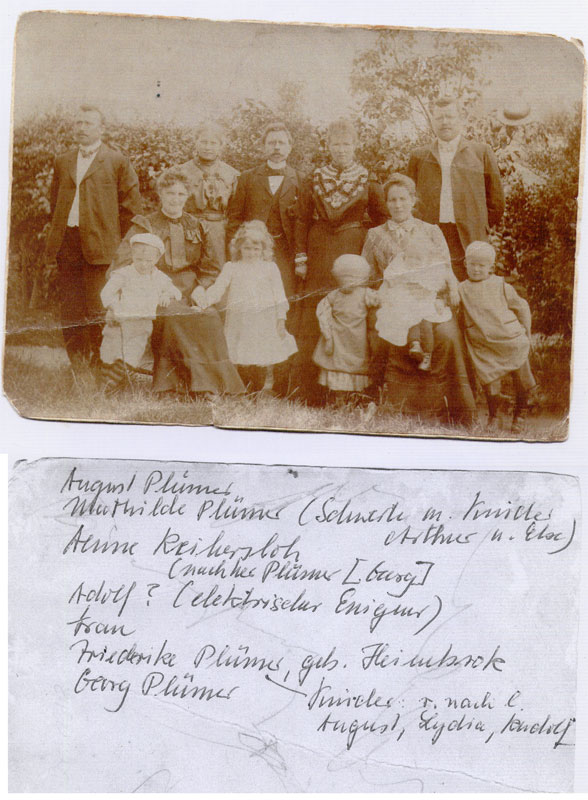 August Plümer
Mathilde Plümer (Schwerte m. Kinder
Arthur u. Else)
Änne Reihersloh
(nachher Plümer [Georg]
Adolf? (elektrischer Enigeur)
Frau
Friederike Plümer, geb. Heimbrok
Georg Plümer
Kinder: r. nach l.
August, Lydia, Rudolf